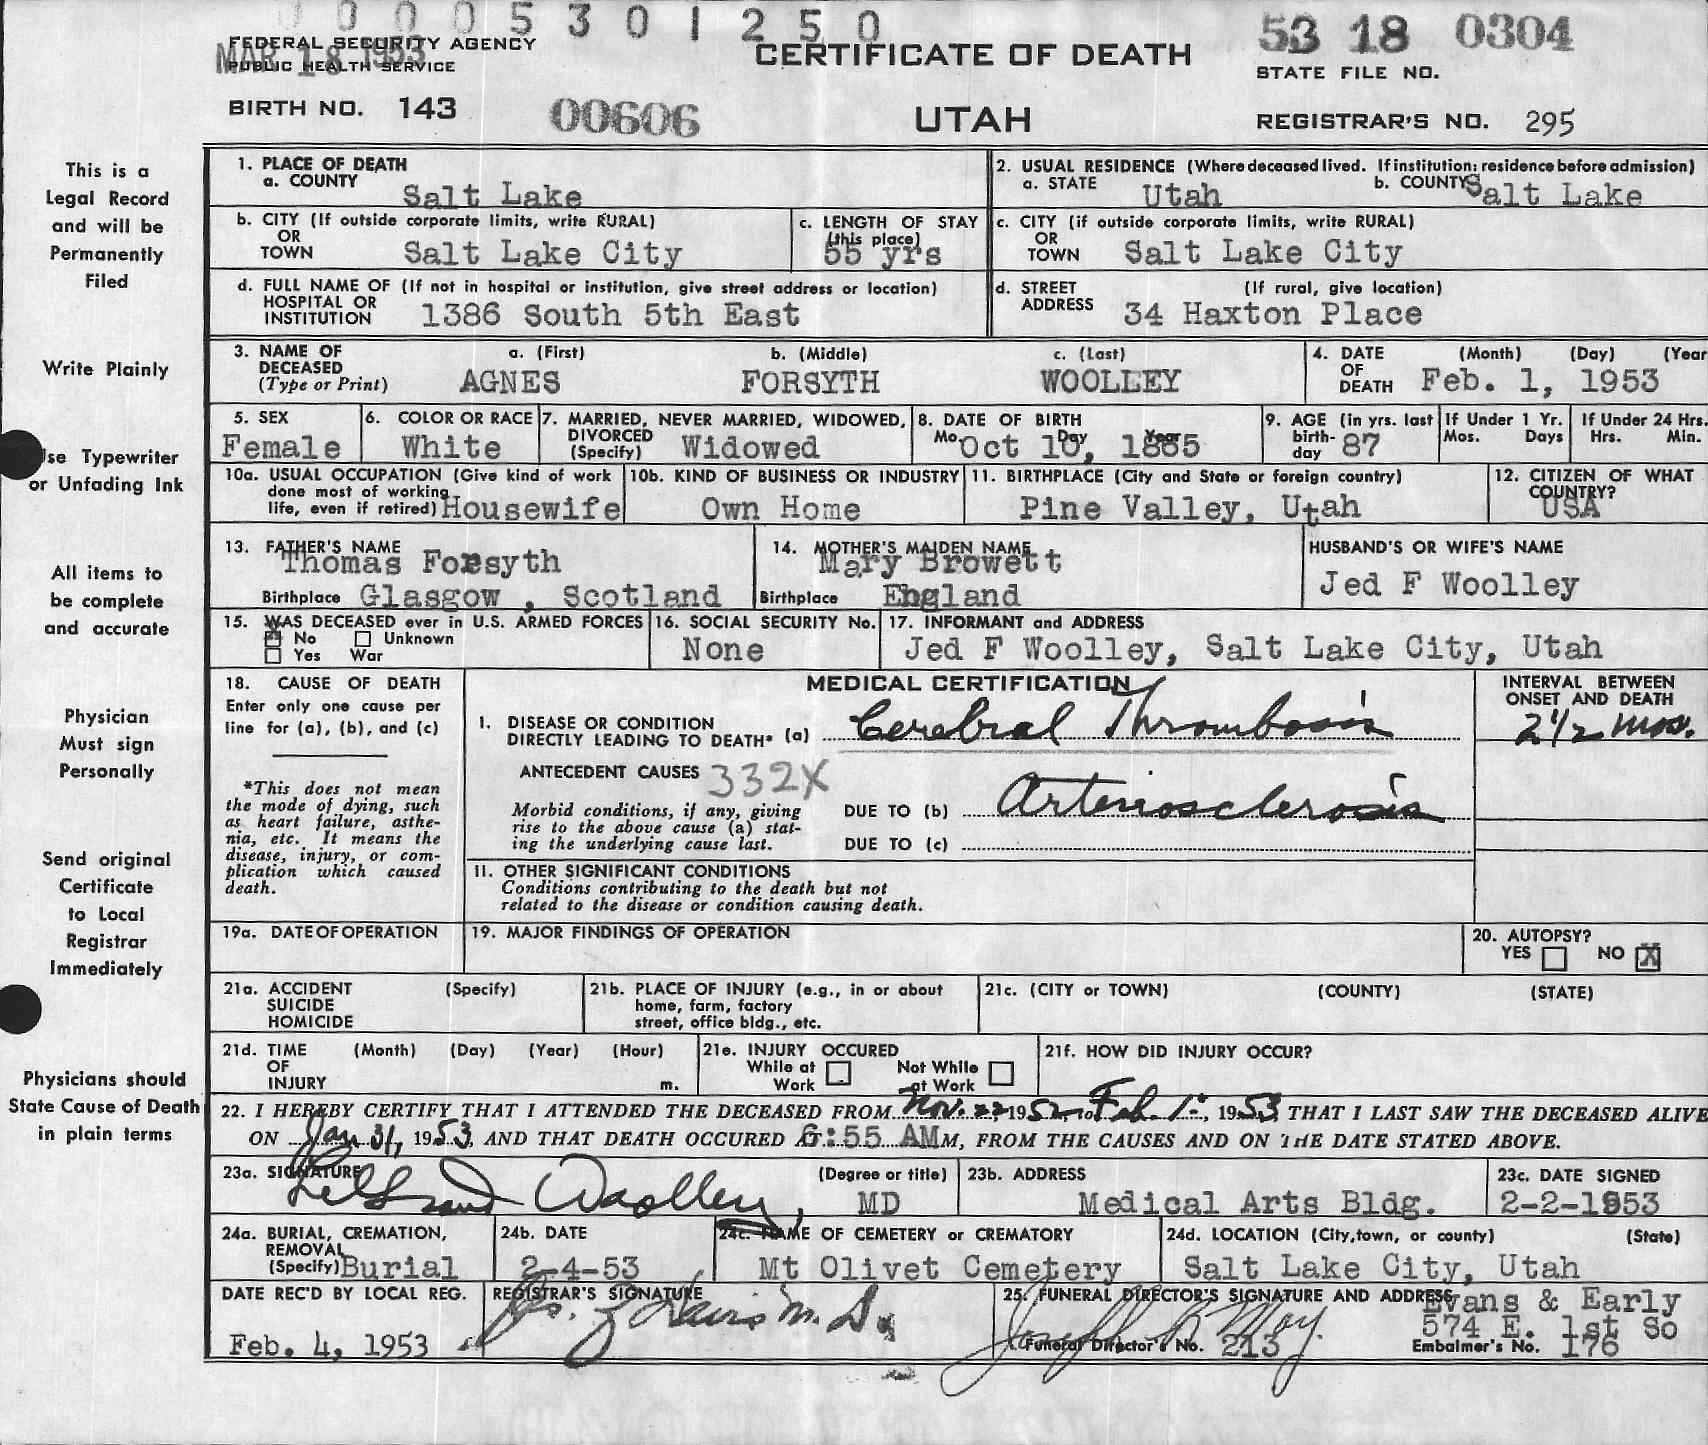 0 0 0 5 3 0 1 2 5 0
53 18 0304
FEDERAL SECURITY AGENCY
PUBLIC HEALTH SERVICE
MAR 18 1953
CERTIFICATE OF DEATH
STATE FILE NO.
BIRTH NO. 143
00606
UTAH
REGISTRAR'S NO. 295
This is a
Legal Record
and will be
Permanently
Filed
Write Plainly
Use Typewriter
or Unfading Ink
All items to
be complete
and accurate
Physician
Must sign
Personally
Send original
Certificate
to Local
Registrar
Immediately
Physicians should
State Cause of Death
in plain terms
1. PLACE OF DEATH
a. COUNTY Salt Lake
2. USUAL RESIDENCE (Where deceased lived. If institution: residence before admission)
a. STATE Utah b. COUNTY Salt Lake
b. CITY (If outside corporate limits, write RURAL)
OR
TOWN Salt Lake City
c. LENGTH OF STAY
(this place)
55 yrs
c. CITY (if outside corporate limits, write RURAL)
OR
TOWN Salt Lake City
d. FULL NAME OF (If not in hospital or institution, give street address or location)
HOSPITAL OR
INSTITUTION 1386 South 5th East
d. STREET (If rural, give location)
ADDRESS 34 Haxton Place
3. NAME OF DECEASED
(Type or Print)
a. (First) b. (Middle) c. (Last)
AGNES FORSYTH WOOLLEY
4. DATE OF DEATH (Month) (Day) (Year
Feb. 1, 1953
5. SEX
Female
6. COLOR OR RACE
White
7. MARRIED, NEVER MARRIED, WIDOWED,
DIVORCED
(Specify) Widowed
8. DATE OF BIRTH
Mo. Day Year
Oct 10, 1865
9. AGE (in yrs. last
birth-
day 87
If Under 1 Yr.
Mos. Days
If Under 24 Hrs.
Hrs. Min.
10a. USUAL OCCUPATION (Give kind of work
done most of working
life, even if retired) Housewife
10b. KIND OF BUSINESS OR INDUSTRY
Own Home
11. BIRTHPLACE (City and State or foreign country)
Pine Valley, Utah
12. CITIZEN OF WHAT
COUNTRY?
USA
13. FATHER'S NAME
Thomas Forsyth
Birthplace Glasgow , Scotland
14. MOTHER'S MAIDEN NAME
Mary Browett
Birthplace England
HUSBAND'S OR WIFE'S NAME
Jed F Woolley
15. WAS DECEASED ever in U.S. ARMED FORCES
No Unknown
Yes War
16. SOCIAL SECURITY No.
None
17. INFORMANT and ADDRESS
Jed F Woolley, Salt Lake City, Utah
18. CAUSE OF DEATH
Enter only one cause per
line for (a), (b), and (c)
*This does not mean
the mode of dying, such
as heart failure, asthe-
nia, etc. It means the
disease, injury, or com-
plication which caused
death.
MEDICAL CERTIFICATION
INTERVAL BETWEEN
ONSET AND DEATH
1. DISEASE OR CONDITION
DIRECTLY LEADING TO DEATH* (a) Cerebral Thrombosis
2 1/2 mos.
ANTECEDENT CAUSES 332X
Morbid conditions, if any, giving
rise to the above cause (a) stat-
ing the underlying cause last.
DUE TO (b) Arteriosclerosis
DUE TO (c)
11. OTHER SIGNIFICANT CONDITIONS
Conditions contributing to the death but not
related to the disease or condition causing death.
19a. DATE OF OPERATION
19. MAJOR FINDINGS OF OPERATION
20. AUTOPSY?
YES NO X
21a. ACCIDENT (Specify)
SUICIDE
HOMICIDE
21b. PLACE OF INJURY (e.g., in or about
home, farm, factory
street, office bldg., etc.
21c. (CITY or TOWN) (COUNTY) (STATE)
21d. TIME (Month) (Day) (Year) (Hour)
OF
INJURY m.
21e. INJURY OCCURED
While at Work Not While at Work
21f. HOW DID INJURY OCCUR?
22. I HEREBY CERTIFY THAT I ATTENDED THE DECEASED FROM Nov. 22 1952 to Feb. 1, 1953 THAT I LAST SAW THE DECEASED ALIVE
ON Jan 31, 1953, AND THAT DEATH OCCURED 6:55 AM m, FROM THE CAUSES AND ON THE DATE STATED ABOVE.
23a. SIGNATURE (Degree or title)
Woolley, MD
23b. ADDRESS
Medical Arts Bldg.
23c. DATE SIGNED
2-2-1953
24a. BURIAL, CREMATION,
REMOVAL
(Specify) Burial
24b. DATE
2-4-53
24c. NAME OF CEMETERY or CREMATORY
Mt Olivet Cemetery
24d. LOCATION (City, town, or county) (State)
Salt Lake City, Utah
DATE REC'D BY LOCAL REG.
Feb. 4, 1953
REGISTRAR'S SIGNATURE
25. FUNERAL DIRECTOR'S SIGNATURE AND ADDRESS
Evans & Early
574 E. 1st So
Funeral Director's No. 213
Embalmer's No. 176